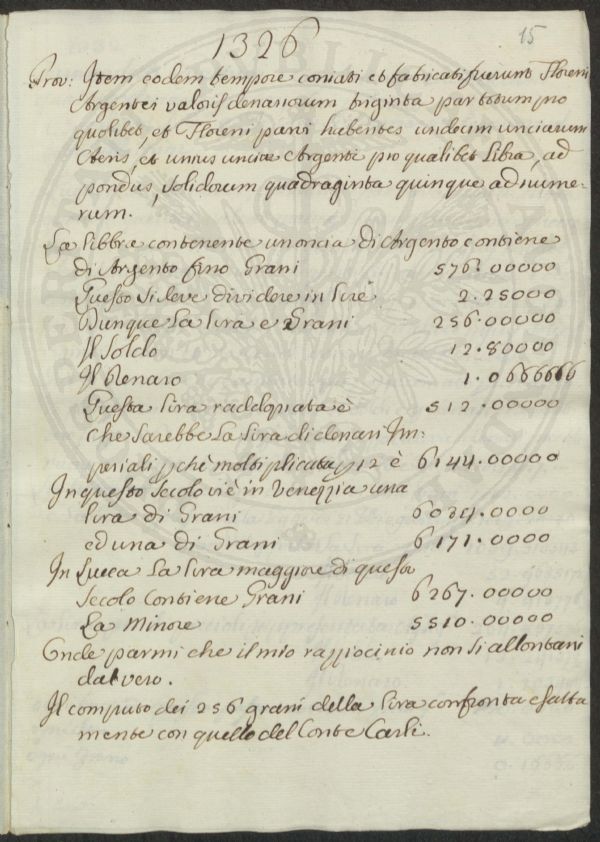 1326
15
Prov: Item eodem tempore coniati et fabricati fuerunt Floreni
Argentei valoris denariorum triginta par totum pro
quolibet, et Floreni parvi habentes undecim unciarum
Aeris, et unius unciae Argenti pro qualibet Libra, ad
pondus, solidorum quadraginta quinque ad nume-
rum.
La libbra contenente un oncia di Argento contiene
di Argento fino Grani 576.00000
Questo si deve dividere in lire 2.25000
Dunque La lira e Grani 256.00000
Il Soldo 12.80000
Il Denaro 1.0666666
Questa lira raddopiata è 512.00000
che sarebbe La lira di denari Im:
periali pchè moltiplicata p 12 è 6144.00000
In questo secolo vi è in Venezzia una
lira di Grani 6034.0000
ed una di Grani 6171.0000
In Lucca La lira maggiore di questo
secolo contiene Grani 6267.00000
La Minore 5510.00000
Onde parmi che il mio raziocinio non si allontani
dal vero.
Il computo dei 256 grani della lira confronta esatta
mente con quello del Conte Carli.